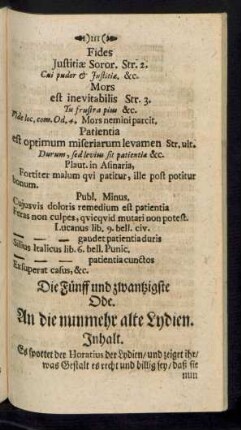 Fides
Justitiæ Soror. Str. 2.
Cui pudor & Justitia. &c.
Mors
est inevitabilis Str. 3.
Tu frustra pius &c.
Vide loc. com. Od. 4. Mors nemini parcit.
Patientia
est optimum miseriarum levamen Str. ult.
Durum, sed levius fit patientia &c.
Plaut. in Asinaria,
Fortiter malum qvi patitur, ille post potitur
bonum.
Publ. Minus.
Cujusvis doloris remedium est patientia
Feras non culpes, qvicqvid mutari non potest.
Lucanus lib. 9. bell. civ.
— — — gaudet patientia duris
Silius Italicus lib. 6. bell. Punic,
— — — patientia cunctos
Exsuperat casus, &c.
Die Fünff und zwantzigste
Ode.
An die nunmehr alte Lydien.
Inhalt.
Es spottet der Horatius der Lydien/ und zeiget ihr/
was Gestalt es recht und billig sey/ daß sie
nun